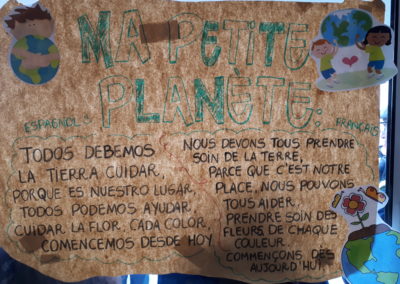 MA PETITE
PLANÈTE:
ESPAGNOL:
TODOS DEBEMOS
LA TIERRA CUIDAR,
PORQUE ES NUESTRO LUGAR,
TODOS PODEMOS AYUDAR.
CUIDAR LA FLOR, CADA COLOR,
COMENCEMOS DESDE HOY.
FRANÇAIS
NOUS DEVONS TOUS PRENDRE
SOIN DE LA TERRE,
PARCE QUE C'EST NOTRE
PLACE, NOUS POUVONS
TOUS AIDER.
PRENDRE SOIN DES
FLEURS DE CHAQUE
COULEUR.
COMMENÇONS DÈS
AUJOURD'HUI.